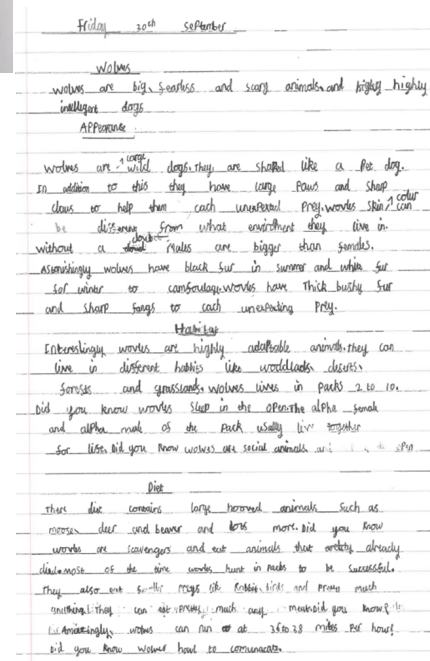 Friday 30th September
Wolves
Wolves are big, fearless and scary animals and highly highly
intellegent dogs
Appearance
Wolves are large wild dogs. They are shaped like a Pet dog.
In addition to this they have large Paws and sharp
claws to help them cach unexpected Prey. wovles skin colur can
be different from what enviroment they live in.
without a doubt Males are bigger than females.
Astonishingly wolves have black fur in summer and white fur
for winter to camfoulage. wovles have Thick bushy fur
and sharp fangs to cach unexpecting Prey.
Interestingly wovles are highly adaptable animals. They can
live in different like woddlads, deserts,
forests and grasslands. wolves lives in Packs 2 to 10.
Did you know wovles sleep in the open. The alpha female
and alpha male of the Pack usally live together
for life. Did you know wolves are social animals open
Diet
There diet contains large hooved animals such as
moose, deer and beaver and more. Did you know
wovles are scavengers and eat animals that already
died. most of the time wovles hunt in Packs to be successful.
They also eat like Rabbits, birds and much
anything! They can much any meat. Did you know
Amazingly, wolves can run at 36 to 38 miles Per hour?
Did you know wolves howl to comunicate.